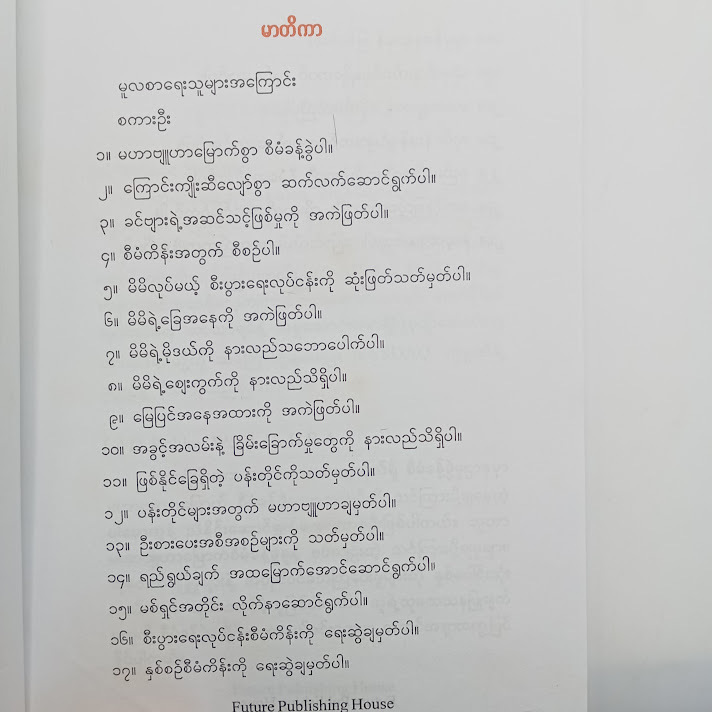 မာတိကာ
မူလစာရေးသူများအကြောင်း
စကားဦး
၁။ မဟာဗျူဟာမြောက်စွာ စီမံခန့်ခွဲပါ။
၂။ ကြောင်းကျိုးဆီလျော်စွာ ဆက်လက်ဆောင်ရွက်ပါ။
၃။ ခင်ဗျားရဲ့အဆင်သင့်ဖြစ်မှုကို အကဲဖြတ်ပါ။
၄။ စီမံကိန်းအတွက် စီစဉ်ပါ။
၅။ မိမိလုပ်မယ့် စီးပွားရေးလုပ်ငန်းကို ဆုံးဖြတ်သတ်မှတ်ပါ။
၆။ မိမိရဲ့ခြေအနေကို အကဲဖြတ်ပါ။
၇။ မိမိရဲ့မိုဒယ်ကို နားလည်သဘောပေါက်ပါ။
၈။ မိမိရဲ့ဈေးကွက်ကို နားလည်သိရှိပါ။
၉။ မြေပြင်အနေအထားကို အကဲဖြတ်ပါ။
၁၀။ အခွင့်အလမ်းနဲ့ ခြိမ်းခြောက်မှုတွေကို နားလည်သိရှိပါ။
၁၁။ ဖြစ်နိုင်ခြေရှိတဲ့ ပန်းတိုင်ကိုသတ်မှတ်ပါ။
၁၂။ ပန်းတိုင်များအတွက် မဟာဗျူဟာချမှတ်ပါ။
၁၃။ ဦးစားပေးအစီအစဉ်များကို သတ်မှတ်ပါ။
၁၄။ ရည်ရွယ်ချက် အထမြောက်အောင်ဆောင်ရွက်ပါ။
၁၅။ မစ်ရှင်အတိုင်း လိုက်နာဆောင်ရွက်ပါ။
၁၆။ စီးပွားရေးလုပ်ငန်းစီမံကိန်းကို ရေးဆွဲချမှတ်ပါ။
၁၇။ နှစ်စဉ်စီမံကိန်းကို ရေးဆွဲချမှတ်ပါ။
Future Publishing House